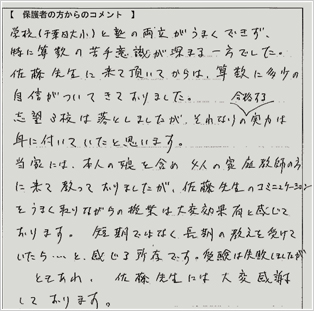 【 保護者の方からのコメント 】
学校(千葉日大小)と塾の両立がうまくできず、
特に算数の苦手意識が深まる一方でした。
佐藤先生に来て頂いてからは、算数に多少の
自信がついてきておりました。
合格する
志望3校は落としましたが、それなりの実力は
身に付いていたと思います。
当家には、本人の娘を含め4人の家庭教師の方
に来て教っておりましたが、佐藤先生のコミニュケーション
をうまく取りながらの授業は大変効果有と感じて
おります。 短期ではなく長期の教えを受けて
いたら…と、感じる所存です。受験は失敗しましたが
ともあれ、佐藤先生には大変感謝
しております。